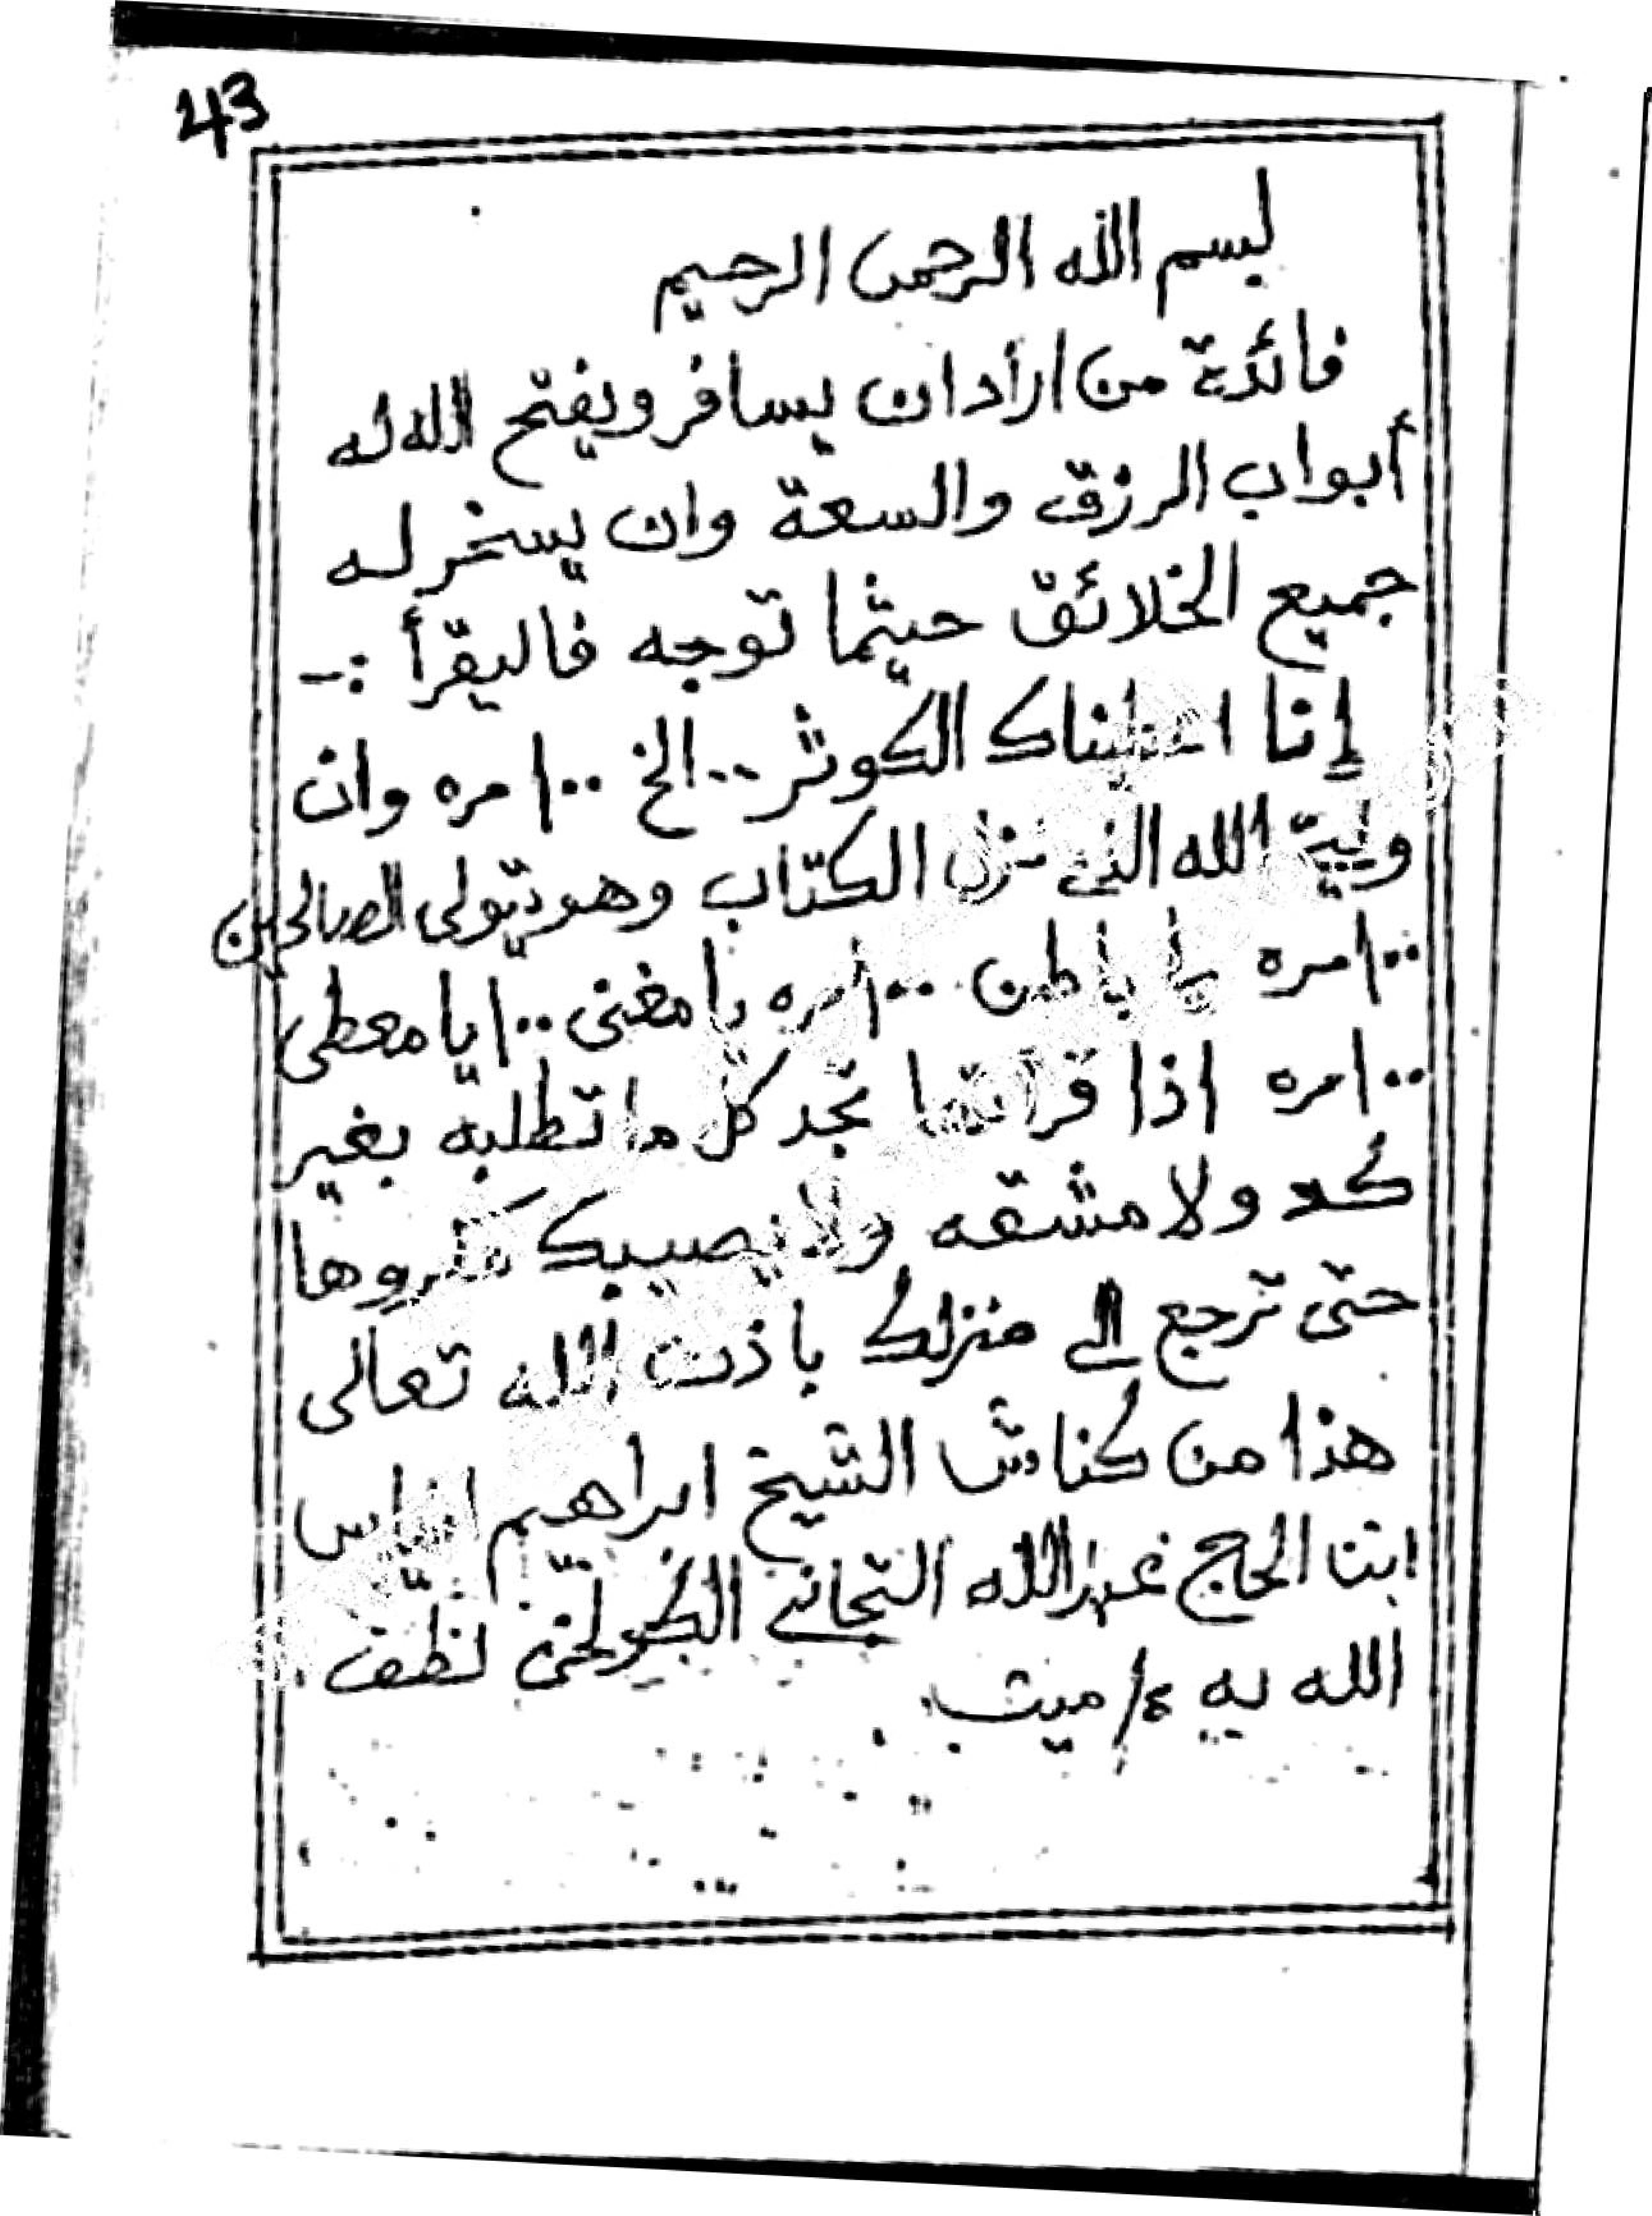 43
بسم الله الرحمن الرحيم
فائدة من اراد ان يسافر ويفتح الله له
أبواب الرزق والسعة وان يسخر له
جميع الخلائق حيثما توجه فاليقرأ :-
إنا اعطيناك الكوثر..الخ ١٠٠ مره وان
وليّي الله الذى نزل الكتاب وهو يتولى الصالحين
١٠٠ مره يا باطن ١٠٠ مره يا مغنى ١٠٠ يا معطى
١٠٠ مره اذا قرأتها تجد كل ما تطلبه بغير
كد ولا مشقه ولا يصيبك مكروها
حتى ترجع الى منزلك باذن الله تعالى
هذا من كناش الشيخ ابراهيم انياس
ابن الحاج عبدالله التجانى الكولخى لطف
الله به ءامين